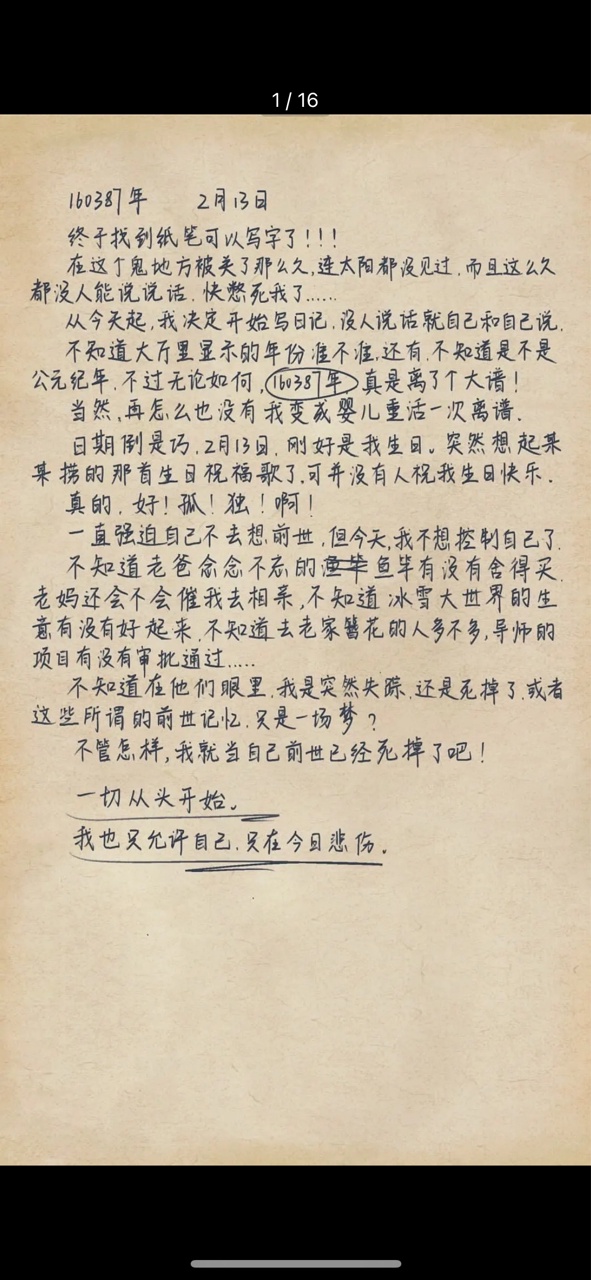 1 / 16
160387年 2月13日
终于找到纸笔可以写字了!!!
在这个鬼地方被关了那么久,连太阳都没见过,而且这么久
都没人能说说话,快憋死我了……
从今天起,我决定开始写日记,没人说话就自己和自己说.
不知道大厅里显示的年份准不准,还有,不知道是不是
公元纪年,不过无论如何,160387年真是离了个大谱!
当然,再怎么也没有我变成婴儿重活一次离谱.
日期倒是巧,2月13日,刚好是我生日。突然想起某
某捞的那首生日祝福歌了,可并没有人祝我生日快乐.
真的,好!孤!独!啊!
一直强迫自己不去想前世,但今天,我不想控制自己了.
不知道老爸念念不忘的鱼竿有没有舍得买,
老妈还会不会催我去相亲,不知道冰雪大世界的生
意有没有好起来,不知道去老家簪花的人多不多,导师的
项目有没有审批通过……
不知道在他们眼里,我是突然失踪,还是死掉了,或者
这些所谓的前世记忆,只是一场梦?
不管怎样,我就当自己前世已经死掉了吧!
一切从头开始。
我也只允许自己,只在今日悲伤。